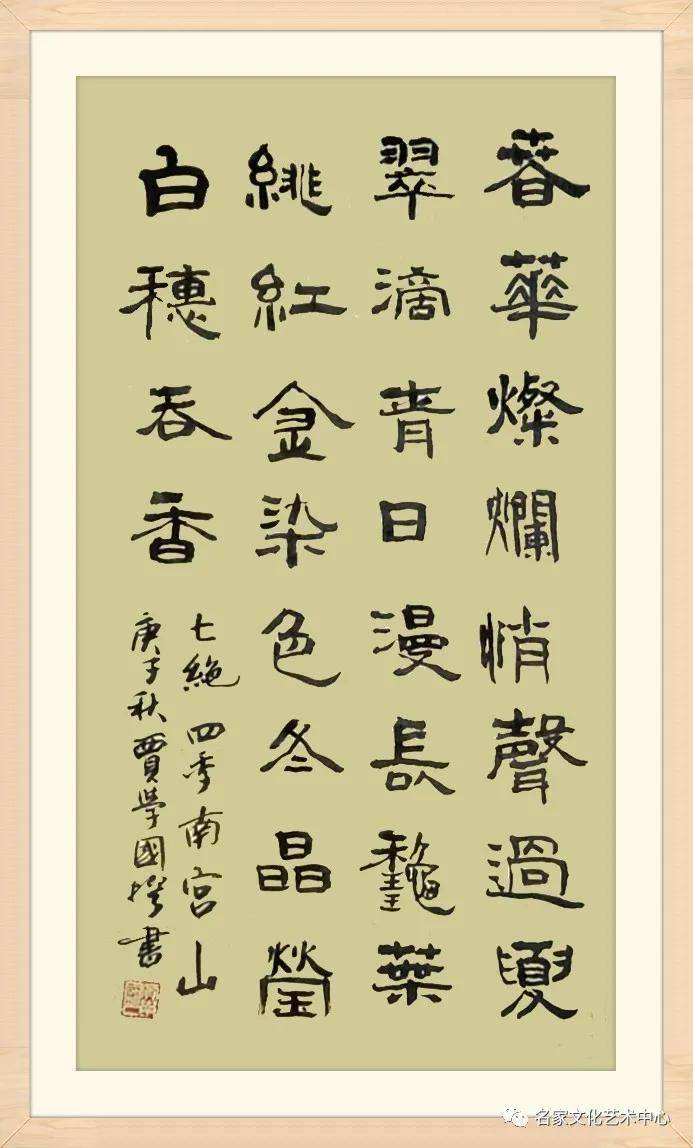 春華燦爛悄聲過夏
翠滴青日漫長龝葉
緋紅金染色冬晶瑩
白穗吞香
七絶 四季南宫山
庚子秋賈學國撰書
名家文化艺术中心